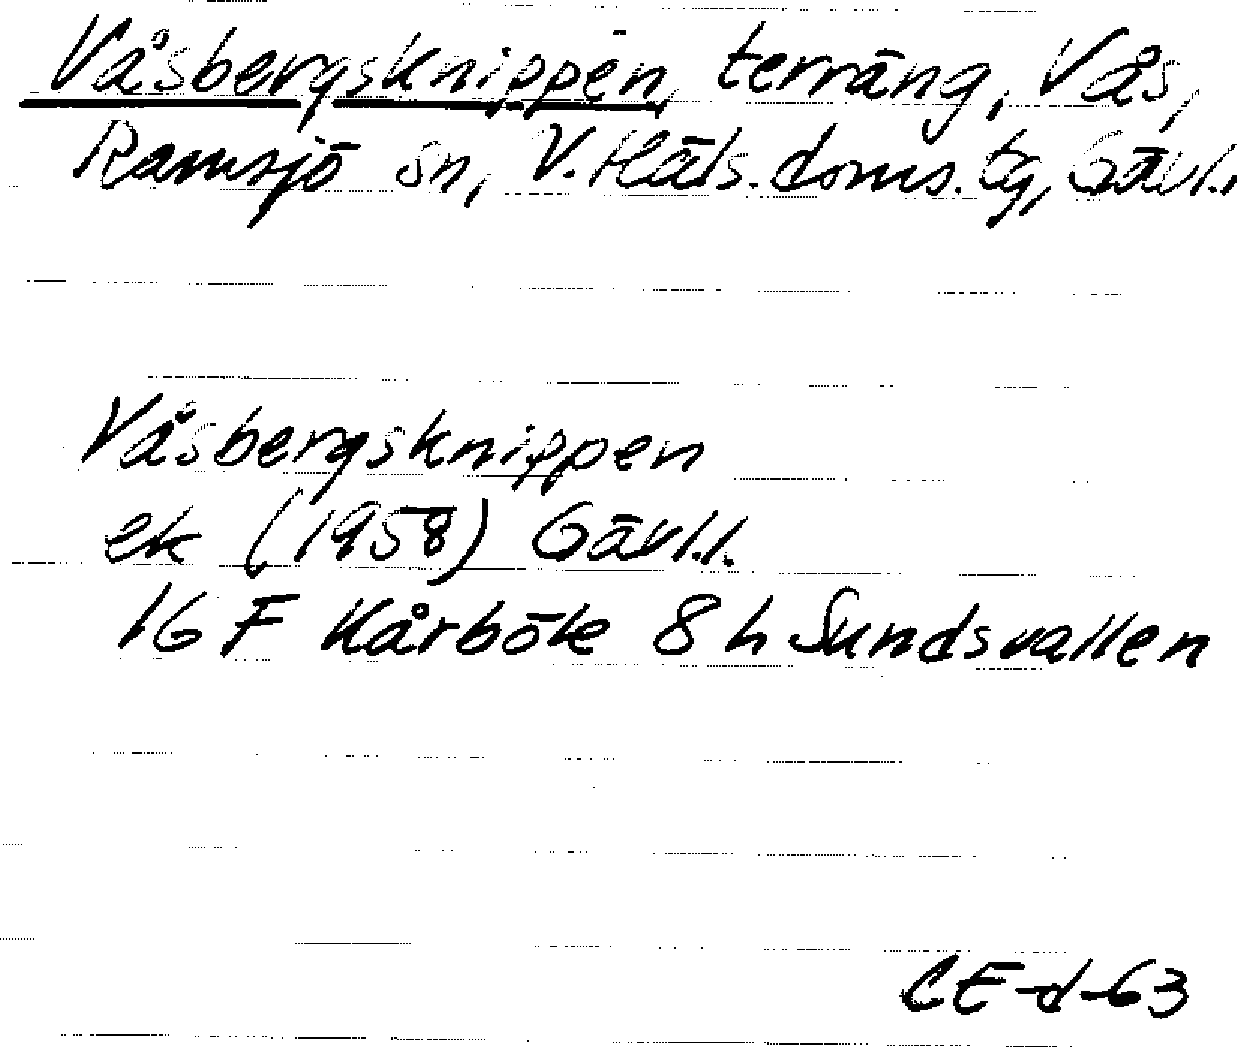 Våsbergsknippen, terräng, Vås,
Ramsjö sn, V. Häls. doms. tg, Gävl.l.
Våsbergsknippen
ek (1958) Gävl.l.
16 F Kårböle 8 h Sundsvallen
CE-d-63